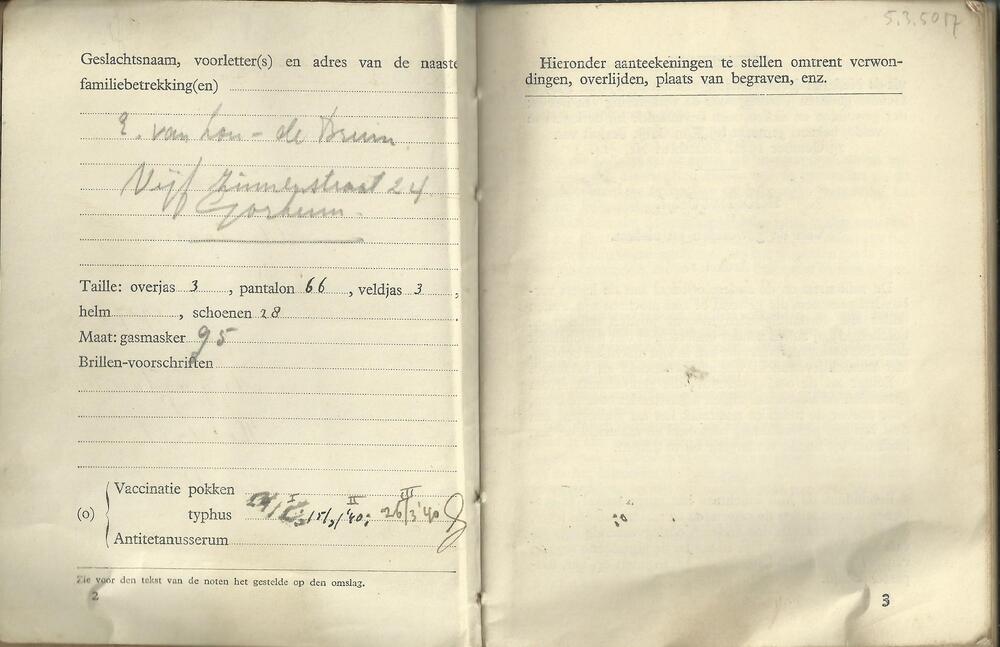 Geslachtsnaam, voorletter(s) en adres van de naaste
familiebetrekking(en)
E. van Lon - de Bruin
Vijf Zinnenstraat 24
Gorkum.
Taille: overjas 3, pantalon 66, veldjas 3,
helm, schoenen 28
Maat: gasmasker 95
Brillen-voorschriften
Vaccinatie pokken
I II III
(o) typhus 15/3/'40; 26/3 '40
Antitetanusserum
Zie voor den tekst van de noten het gestelde op den omslag.
2
5.3.5017
Hieronder aanteekeningen te stellen omtrent verwon-
dingen, overlijden, plaats van begraven, enz.
3